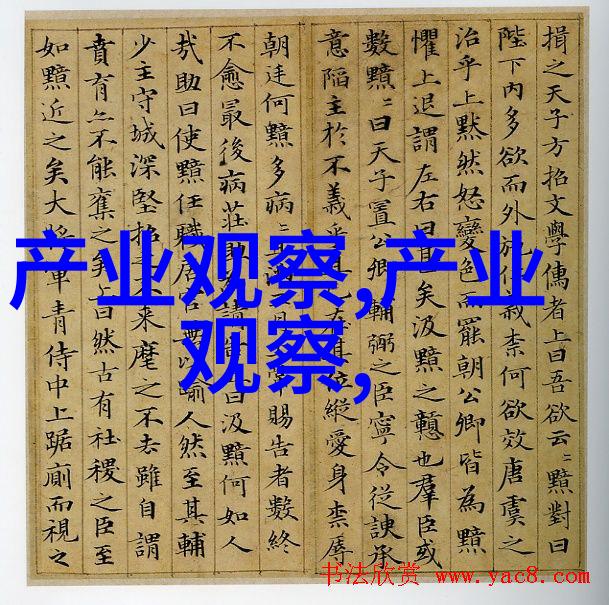 損之天子方招文學儒者上曰吾欲云〻黯對曰
陛下内多欲而外施仁義柰何欲效唐虞之
治乎上黙然怒變色而罷朝公卿皆為黯
懼上退謂左右曰甚矣汲黯之戇也羣臣或
數黯〻曰天子置公卿輔弼之臣寧令從諛承
意陷主於不義乎且已在其位縱愛身柰辱
朝廷何黯多病〻且滿三月上常賜告者數終
不愈最後病莊助為請告上曰汲黯何如人
㢤助曰使黯任職居官無以踰人然至其輔
少主守城深堅招之不来麾之不去雖自謂
賁育亦不能奪之矣上曰然古有社稷之臣至
如黯近之矣大將軍青侍中上踞廁而視之
产业观察,产业
观察,
书法欣赏 www.yac8.com